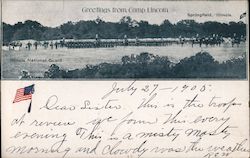 Greetings from Camp Lincoln
Springfield, Illinois
Illinois National Guard
July 27 - 1905.
Dear Sister, this is the troops
at review we form this every
evening This is a misty
morning and cloudy was the weather